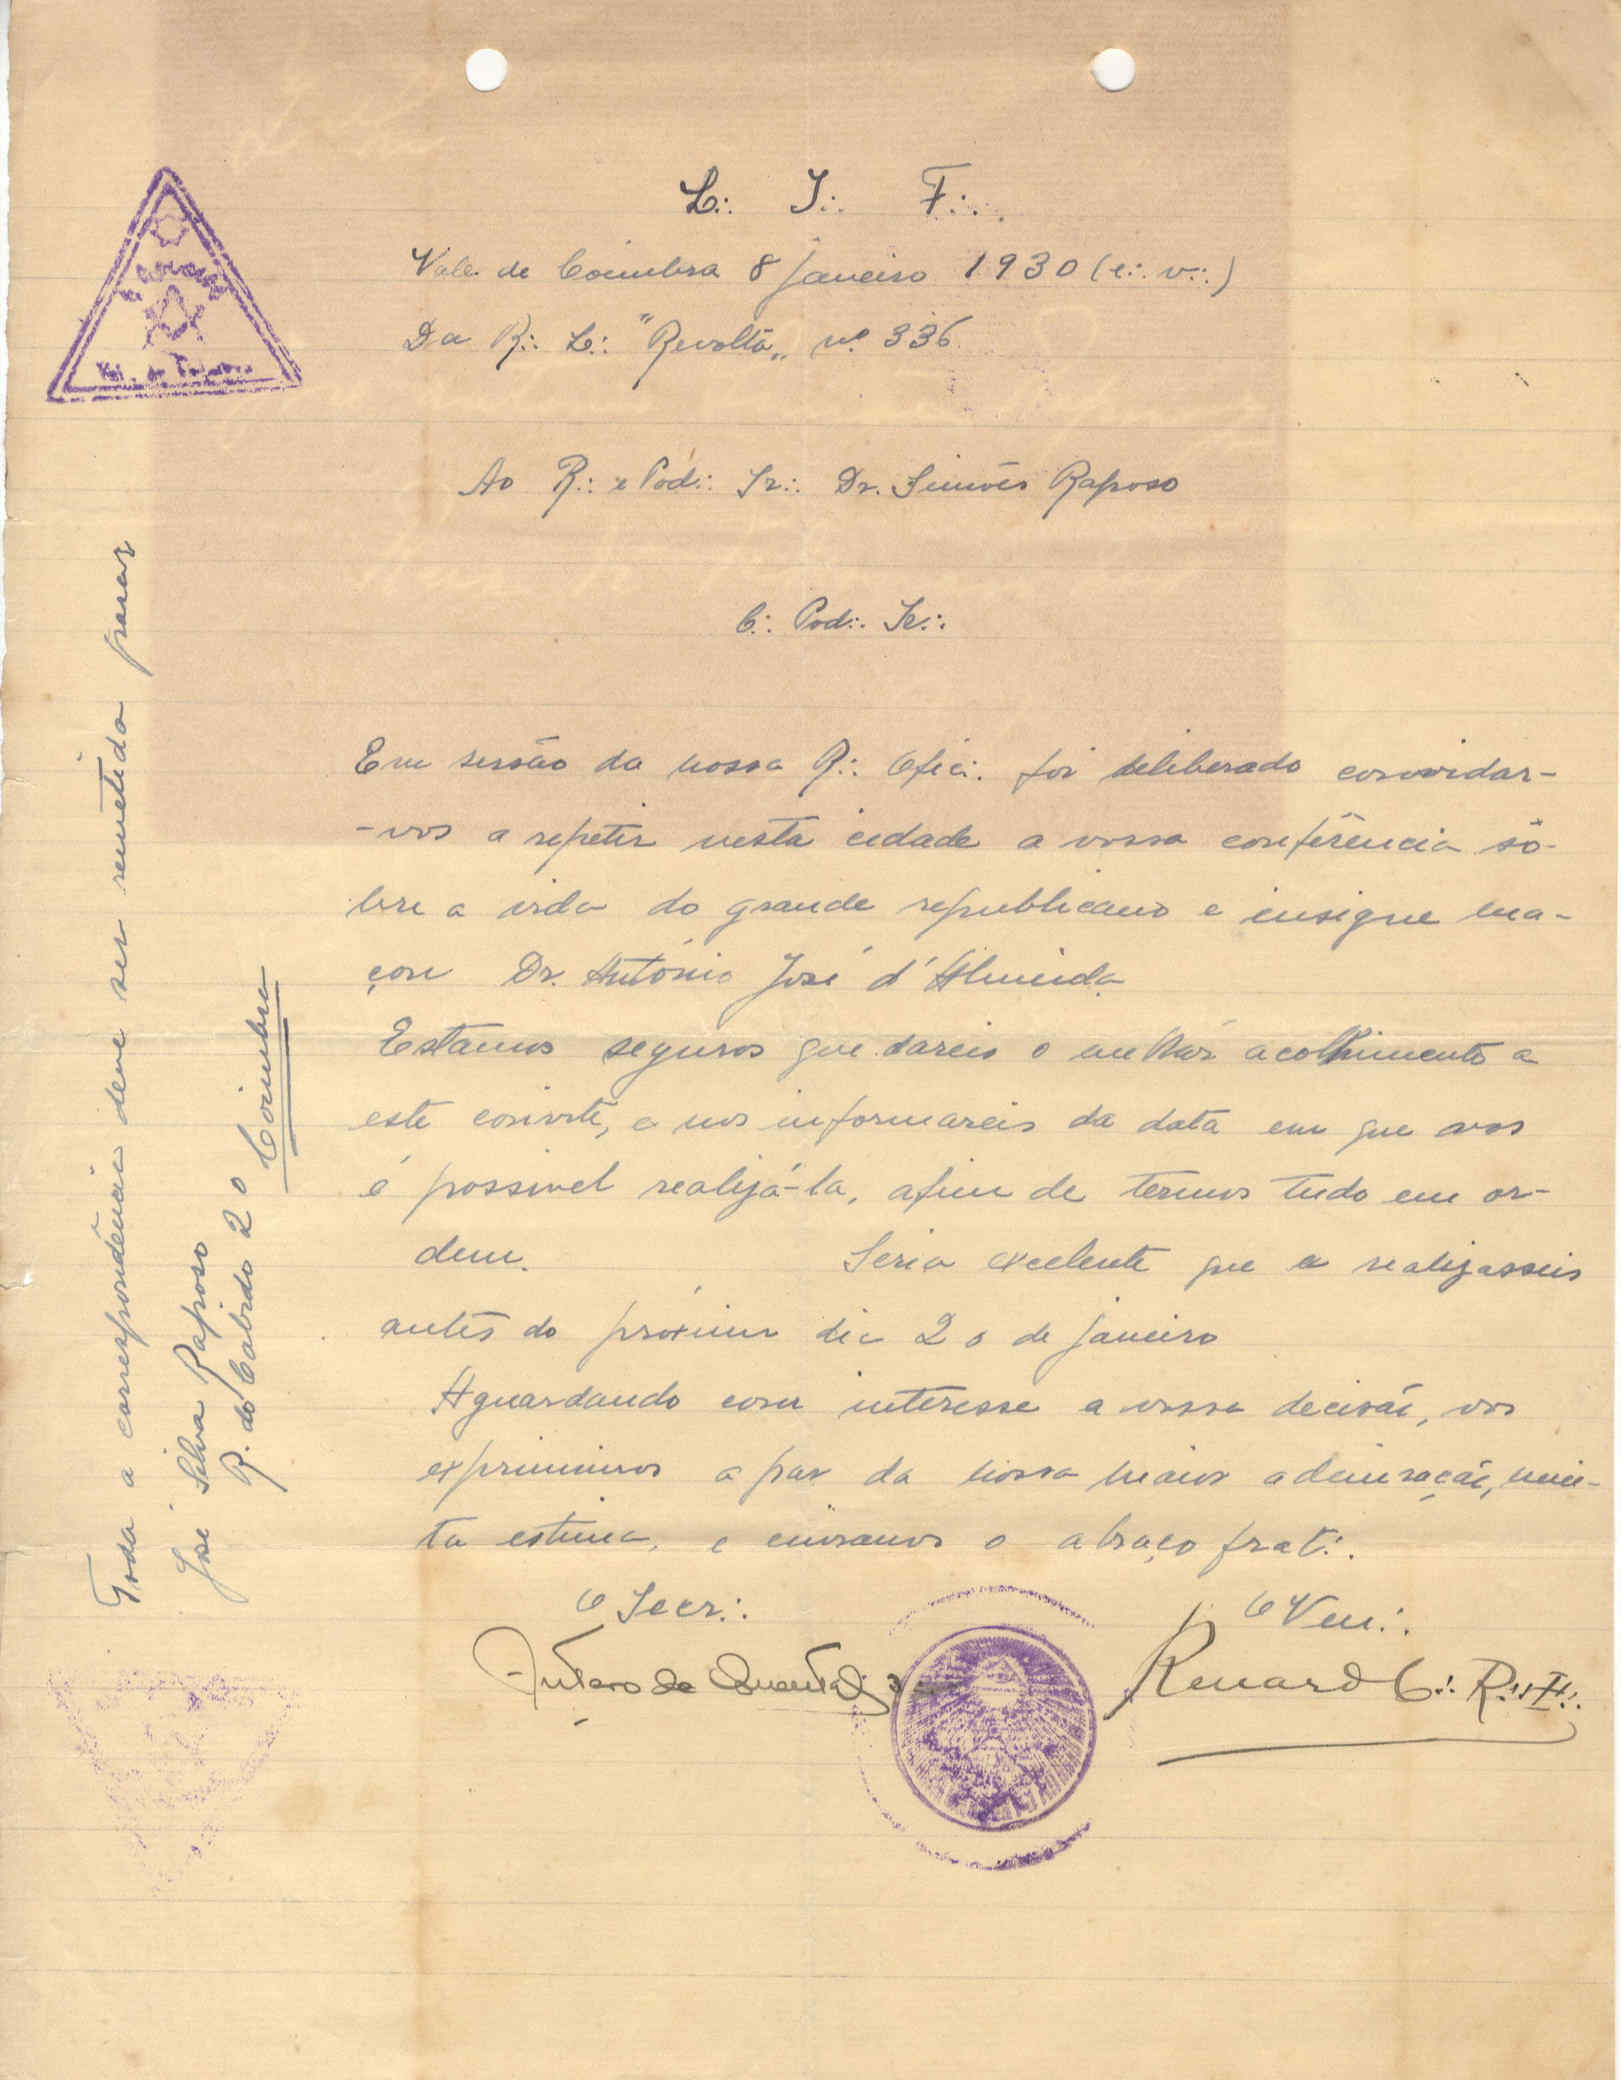 L∴ I∴ F∴
Vale de Coimbra 8 janeiro 1930 (e∴ v∴)
Da R∴ L∴ "Revolta„ nº 336
Ao R∴ e Pod∴ Ir∴ Dr. Simões Raposo
C∴ Pod∴ Ir∴
Em sessão da nossa R∴ Ofic∴ foi deliberado convidar-
-vos a repetir nesta cidade a vossa conferência sô-
bre a vida do grande republicano e insigne ma-
çon Dr. António José d'Almeida
Estamos seguros que dareis o melhor acolhimento a
este convite, e nos informareis da data em que vos
é possivel realizá-la, afim de termos tudo em or-
dem. Seria excelente que a realizasseis
antes do próximo dia 20 de janeiro
Aguardando com interesse a vossa decisão, vos
exprimimos a par da nossa maior admiração, mui-
ta estima, e enviamos o abraço frat∴
O Secr∴ O Ven∴
Antero de Quental Renard C∴ R∴ +∴
Toda a correspondência deve ser remetida para
José Silva Raposo
R. do Cabido 20 Coimbra